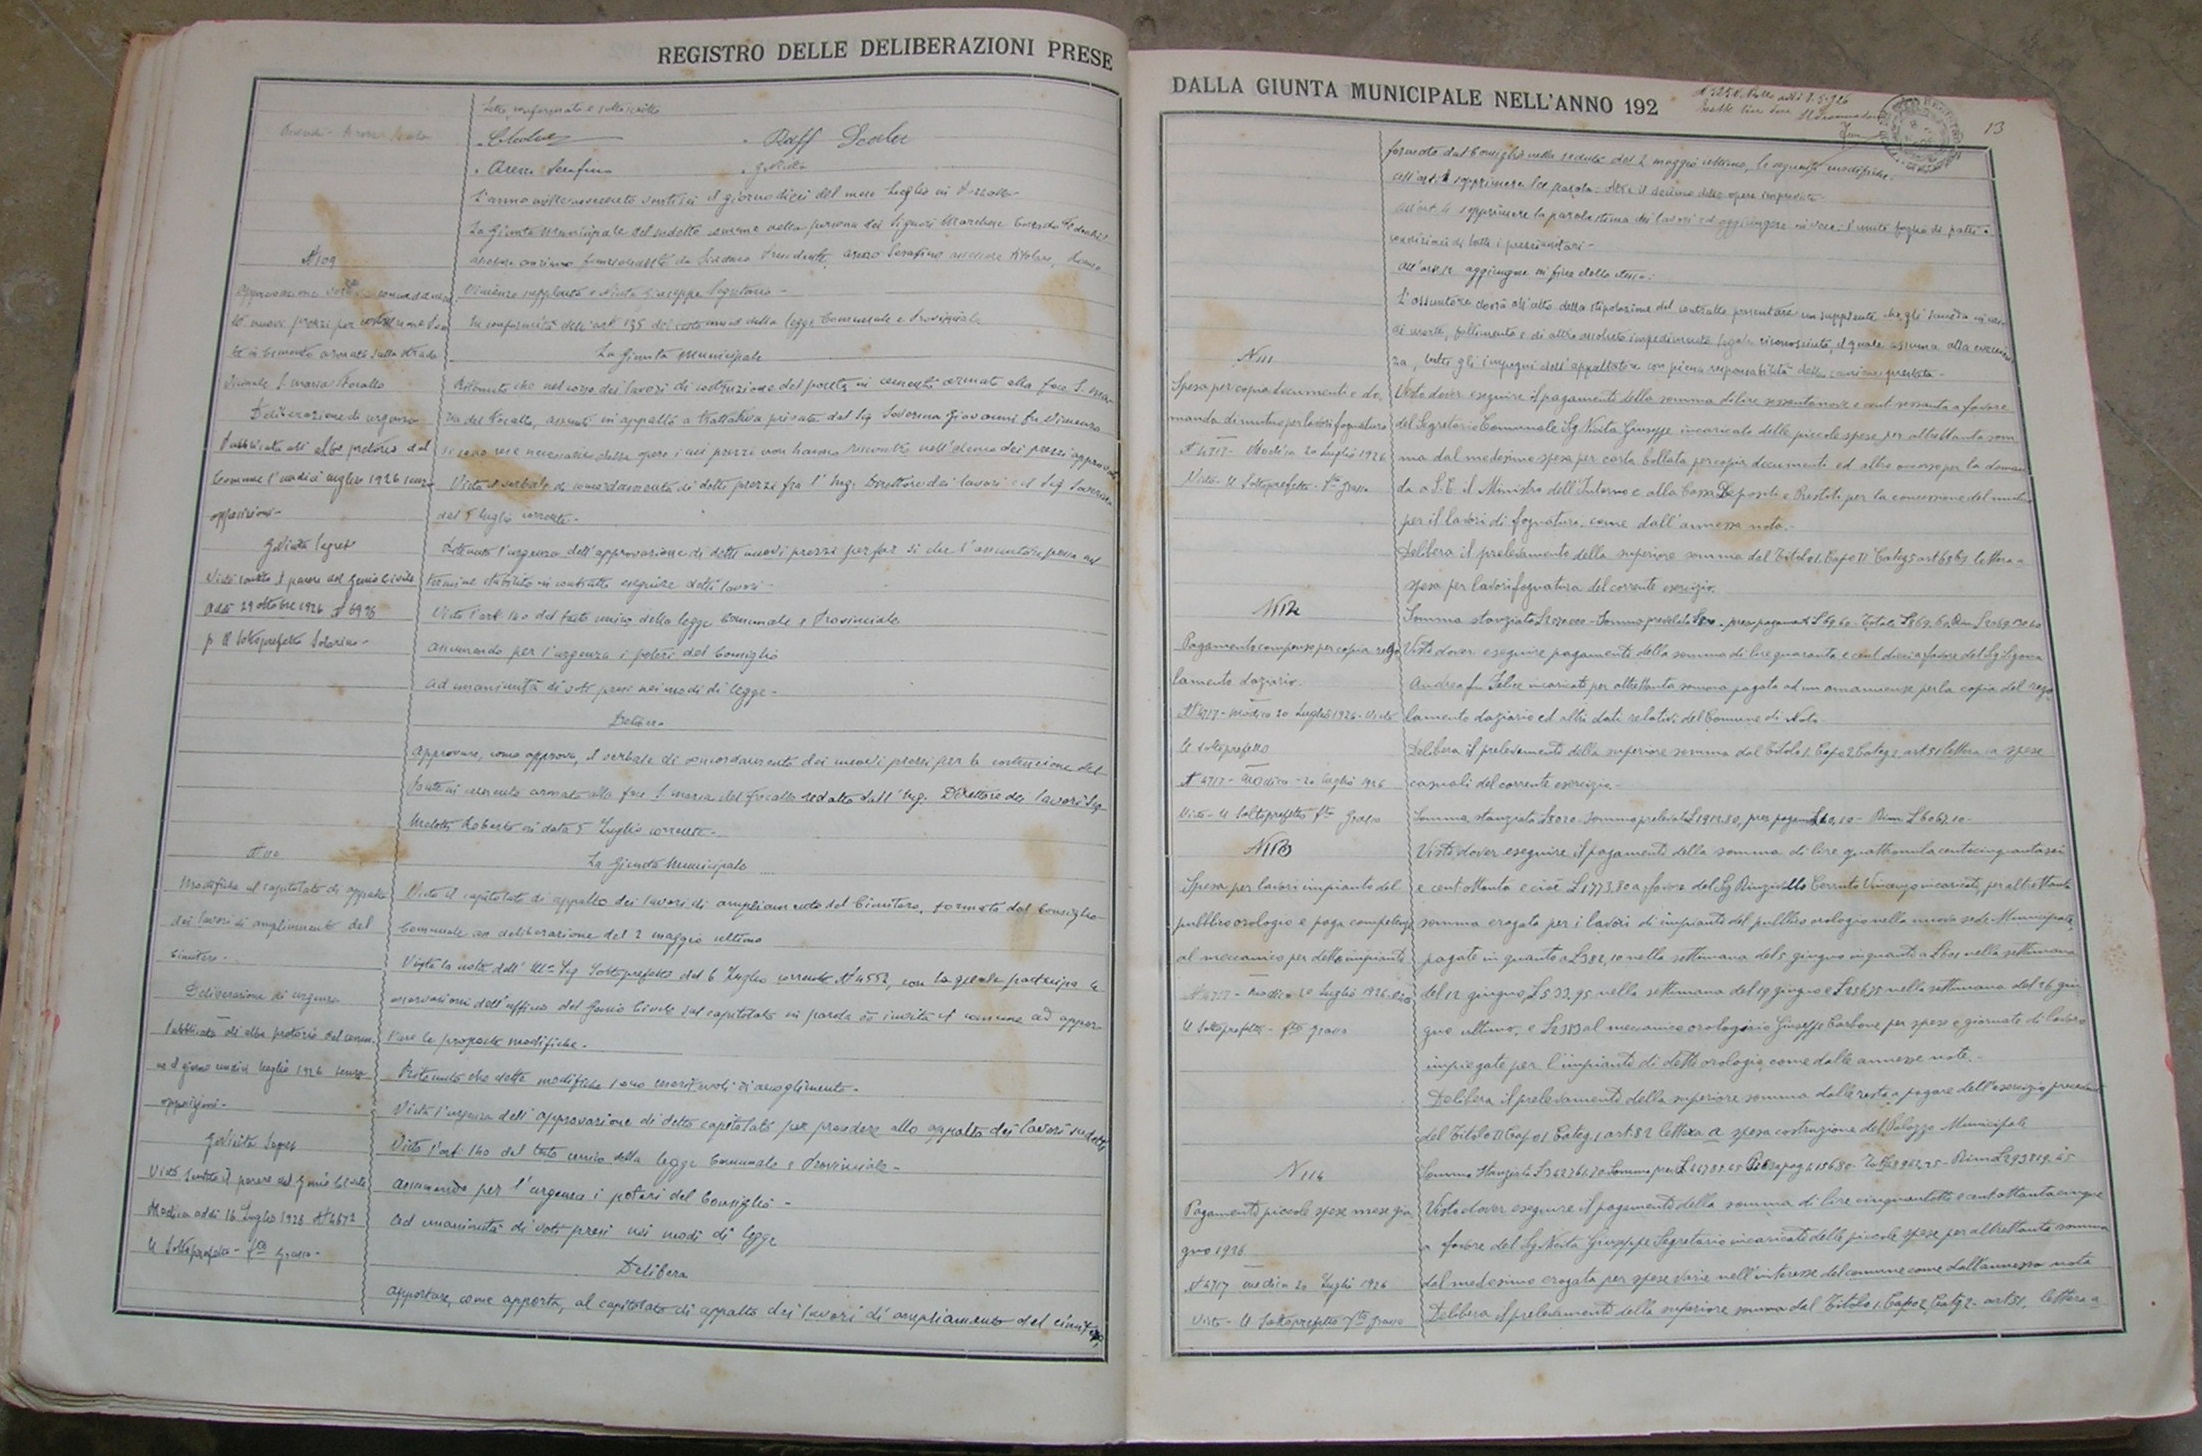 REGISTRO DELLE DELIBERAZIONI PRESE
Letto, confermato e sottoscritto
Arezzo Serafino
L'anno millenovecento ventisei il giorno dieci del mese Luglio in
La Giunta Municipale del sudetto comune nella persona dei Signori Marchese Corrado
assessore anziano funzionante da Sindaco Presidente, Arezzo Serafino assessore titolare,
Vincenzo supplente e Nicita Giuseppe Segretario -
In conformità dell'art 135 del testo unico della legge Comunale e Provinciale
La Giunta Municipale
N 109
Approvazione verb. concordamen
to nuovi prezzi per costruzione pon
te in cemento armato sulla strada
S. Maria Focallo
Deliberazione di urgenza
Pubblicata all'albo pretorio del
Comune l'undici luglio 1926 senza
opposizioni -
G Nicita Segret
Visto sentito il parere del Genio Civile
Addì 29 ottobre 1926 N 6976
p Il Sottoprefetto
Ritenuto che nel corso dei lavori di costruzione del ponte in cemento armato alla foce S. Ma
ria del Focallo, assunti in appalto a trattativa privata dal Sig Giovanni fu Vincenzo
si sono rese necessarie delle opere i cui prezzi non hanno riscontro nell'elenco dei prezzi approvati
Visto il verbale di concordamento di detti prezzi fra l'Ing. Direttore dei lavori e il Sig
del 5 luglio corrente -
Ritenuto l'urgenza dell'approvazione di detti nuovi prezzi per far sì che l'assuntore possa nel
termine stabilito in contratto eseguire detti lavori -
Visto l'art 140 del testo unico della legge Comunale e Provinciale
Assumendo per l'urgenza i poteri del Consiglio
Ad unanimità di voti presi nei modi di legge -
Delibera
Approvare, come approva, il verbale di concordamento dei nuovi prezzi per la costruzione del
ponte in cemento armato alla foce S. Maria del Focallo redatto dall'Ing. Direttore dei lavori Sig
Roberto in data 5 Luglio corrente -
N 110
La Giunta Municipale
Modifiche al capitolato di appalto
dei lavori di ampliamento del
Cimitero -
Deliberazione di urgenza
Pubblicata all'albo pretorio del comu
ne il giorno undici luglio 1926 senza
opposizioni -
G Nicita Segret
Visto sentito il parere del Genio Civile
Modica addì 16 Luglio 1926 N 4672
Il Sottoprefetto - fto Grasso -
Visto il capitolato di appalto dei lavori di ampliamento del Cimitero, formato dal Consiglio
Comunale con deliberazione del 2 maggio ultimo
Vista la nota dell'Ill. Sig Sottoprefetto del 6 Luglio corrente N 4552, con la quale partecipa le
osservazioni dell'ufficio del Genio Civile sul capitolato in parola ed invita il comune ad appor
tare le proposte modifiche.
Ritenuto che dette modifiche sono meritevoli di accoglimento -
Vista l'urgenza dell'approvazione di detto capitolato per procedere allo appalto dei lavori sudetti
Visto l'art 140 del testo unico della legge Comunale e Provinciale -
Assumendo per l'urgenza i poteri del Consiglio -
Ad unanimità di voti presi nei modi di legge
Delibera
Apportare, come apporta, al capitolato di appalto dei lavori di ampliamento del cimitero,
DALLA GIUNTA MUNICIPALE NELL'ANNO 192
13
formato dal Consiglio nella seduta del 2 maggio ultimo, le seguenti modifiche.
all'art. sopprimere le parola: oltre il decimo delle opere
all'art. 4 sopprimere la parola stima dei lavori ed aggiungere in vece: l'unito foglio di patti e
condizioni di tutti i
All'art 12 aggiungere in fine dello stesso:
L'assuntore dovrà all'atto della stipulazione del contratto presentare un supplente che gli in caso
di morte, fallimento o di altro assoluto impedimento legale riconosciuto, il quale assuma all'evenien
za, tutti gli impegni dell'appaltatore con piena responsabilità della cauzione prestata -
N 111
Spesa per copia documenti e do
manda di mutuo per lavori fognatura
N 4717 - Modica 20 Luglio 1926
Visto - Il Sottoprefetto - fto Grasso
Visto dover eseguire il pagamento della somma di lire sessantanove e cent. sessanta a favore
del Segretario Comunale Sig Nicita Giuseppe incaricato delle piccole spese per altrettanta som
ma dal medesimo spesa per carta bollata per copia documenti ed altro occorso per la doman
da a S. E. il Ministro dell'Interno e alla Cassa Depositi e Prestiti per la concessione del mutuo
per i lavori di fognatura come dall'annessa nota -
Delibera il prelevamento della superiore somma dal Titolo 1 Capo II Categ 5 art 69 lettera a
spesa per lavori fognatura del corrente esercizio.
N 112
Pagamento compenso per copia rego
lamento daziario.
N 4717 - Modica 20 Luglio 1926 - Visto
Il Sottoprefetto
N 4717 - Modica - 20 Luglio 1926
Visto - Il Sottoprefetto fto Grasso
Visto dover eseguire pagamento della somma di lire quaranta e cent dieci a favore del Sig
Andrea fu Felice incaricato per altrettanta somma pagata ad un amanuense per la copia del rego
lamento daziario ed altri dati relativi del Comune di Noto -
Delibera il prelevamento della superiore somma dal Titolo 1 Capo 2 Categ 2 art 51 lettera a spese
casuali del corrente esercizio -
N 113
Spesa per lavori impianto del
pubblico orologio e paga competenze
al meccanico per detto impianto
N 4717 - Modica 20 Luglio 1926 Visto
Il Sottoprefetto - fto Grasso
Visto dover eseguire il pagamento della somma di lire quattromila centocinquantasei
e cent ottanta e cioè L 1773,80 a favore del Sig Rinzivillo Cerruto Vincenzo incaricato, per altrettanta
somma erogata per i lavori di impianto del pubblico orologio nella nuova sede Municipale
pagate in quanto a L 382,10 nella settimana del 5 giugno in quanto a L 601 nella settimana
del 12 giugno, L 533,95 nella settimana del 19 giugno e L 256,75 nella settimana del 26 giu
gno ultimo, e L 2383 al meccanico orologiaio Giuseppe Carbone per spese e giornate di lavoro
impiegate per l'impianto di detto orologio, come dalle annesse note -
Delibera il prelevamento della superiore somma dalle resta a pagare dell'esercizio precedente
del Titolo II Capo 1 Categ 1 art 82 lettera a spesa costruzione del Palazzo Municipale
N 114
Pagamento piccole spese mese giu
gno 1926
N 4717 Modica 20 Luglio 1926
Visto - Il Sottoprefetto fto Grasso
Visto dover eseguire il pagamento della somma di lire cinquantotto e cent ottantacinque
a favore del Sig Nicita Giuseppe Segretario incaricato delle piccole spese per altrettanta somma
dal medesimo erogata per spese varie nell'interesse del comune come dall'annessa nota
Delibera il prelevamento della superiore somma dal Titolo 1 Capo 2 Categ 2 - art 51, lettera a